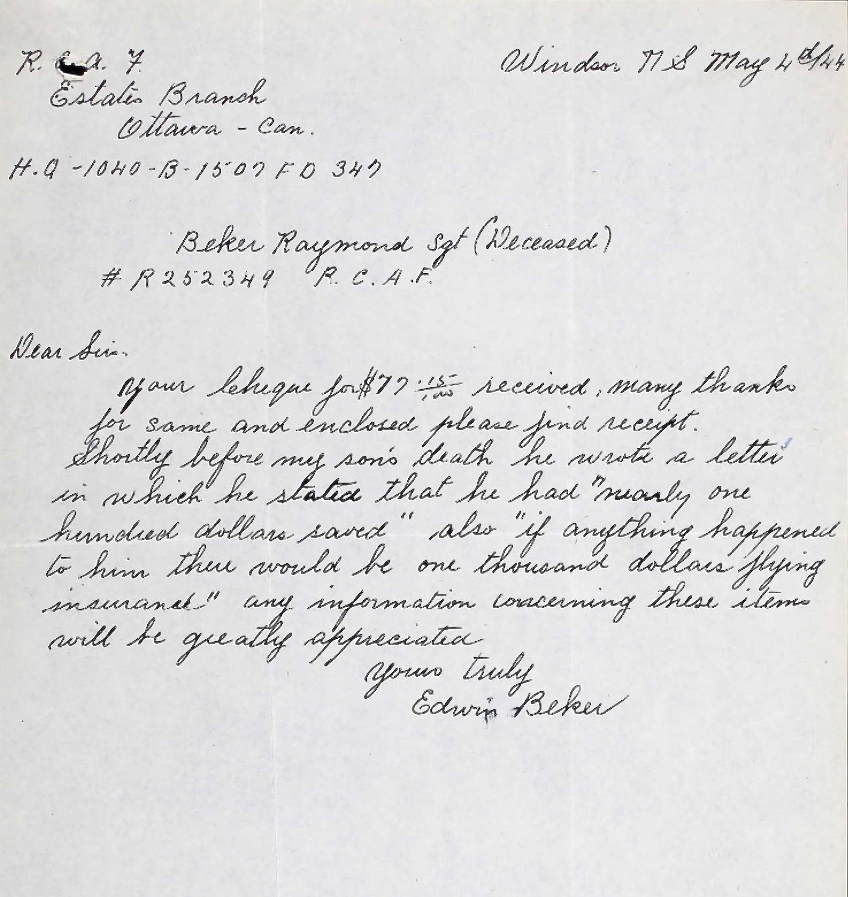 R. C. A. F. Windsor N S May 4th/44
Estates Branch
Ottawa - Can.
H.Q - 1040 - B - 1507 F D 347
Beker Raymond Sgt (Deceased)
# R252349 R. C. A. F.
Dear Sir.
Your cheque for $77 .15/100 received, many thanks
for same and enclosed please find receipt.
Shortly before my son's death he wrote a letter
in which he stated that he had "nearly one
hundred dollars saved" also "if anything happened
to him there would be one thousand dollars flying
insurance" any information concerning these items
will be greatly appreciated
Yours truly
Edwin Beker